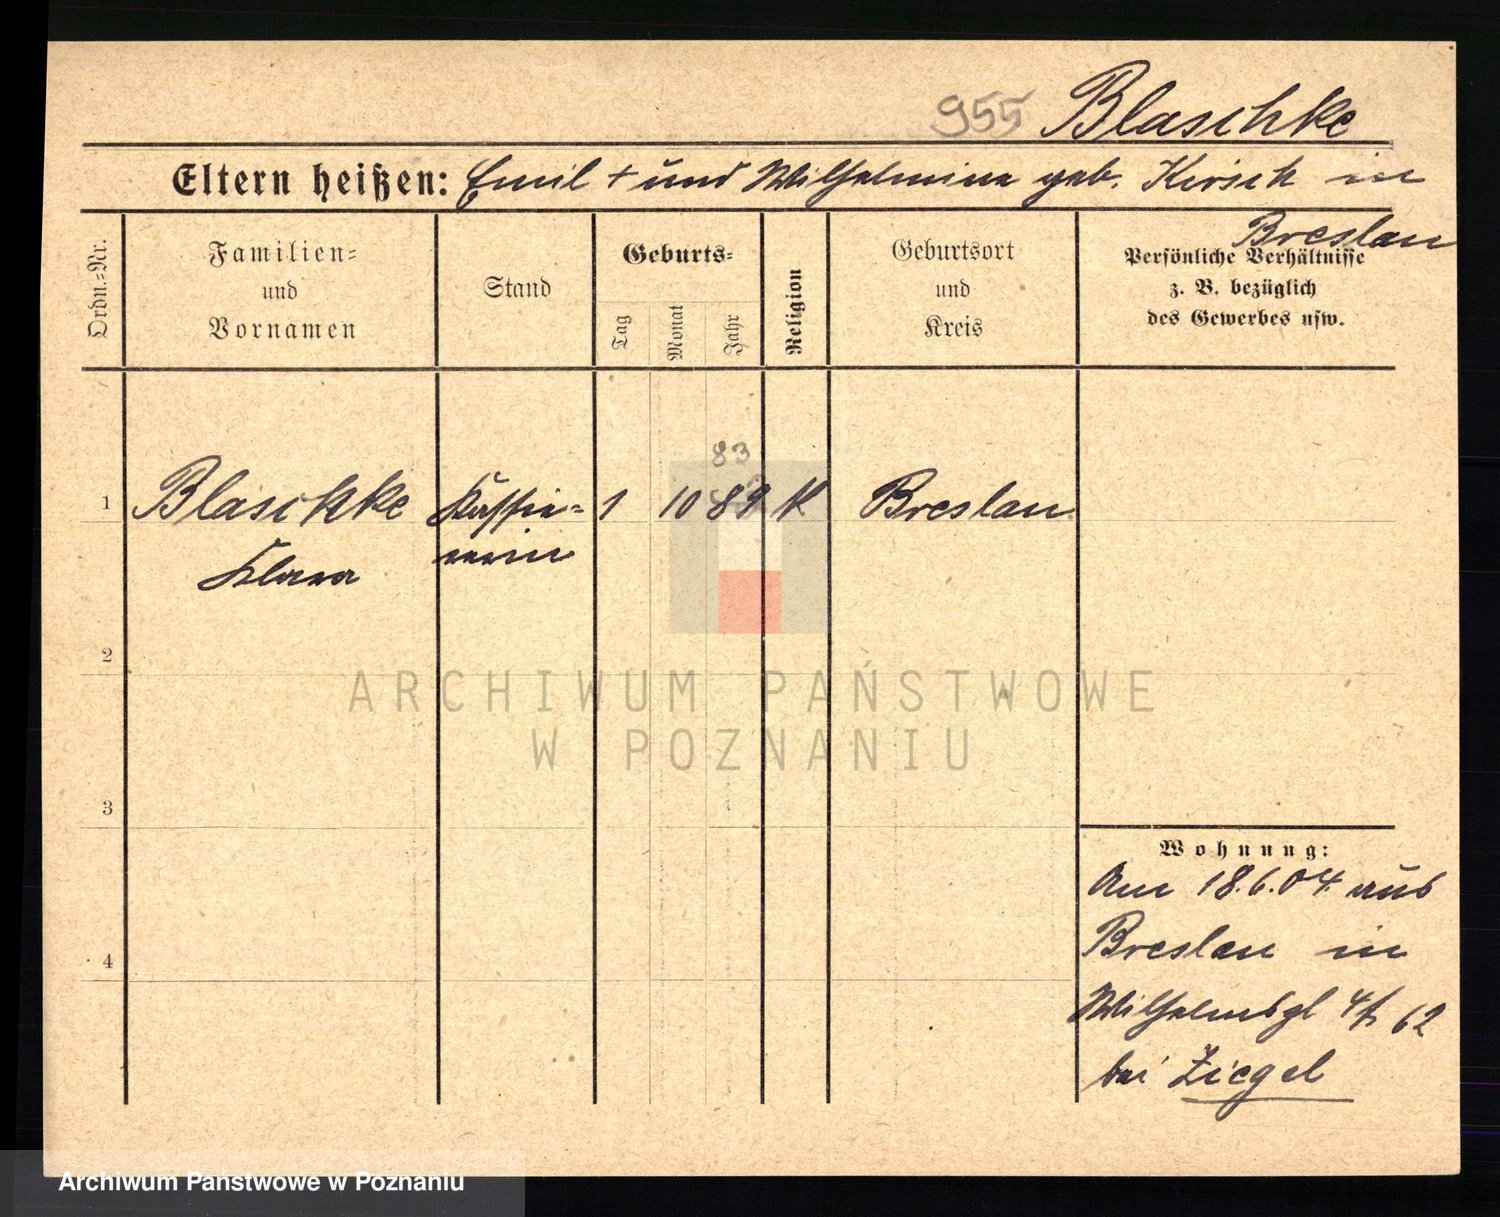 955 Blaschke
Eltern heißen: Emil + und Wilhelmine geb. Kirsch in
Breslau
Ordn.-Nr.
Familien-
und
Vornamen
Stand
Geburts-
Tag
Monat
Jahr
Religion
Geburtsort
und
Kreis
Persönliche Verhältnisse
z. B. bezüglich
des Gewerbes usw.
83
1 Blaschke Kassie- 1 10 89 K Breslau
Klara rerin
2
3
4
Wohnung:
Am 18.6.04 aus
Breslau in
62
bei Ziegel
ARCHIWUM PAŃSTWOWE
W POZNANIU
Archiwum Państwowe w Poznaniu